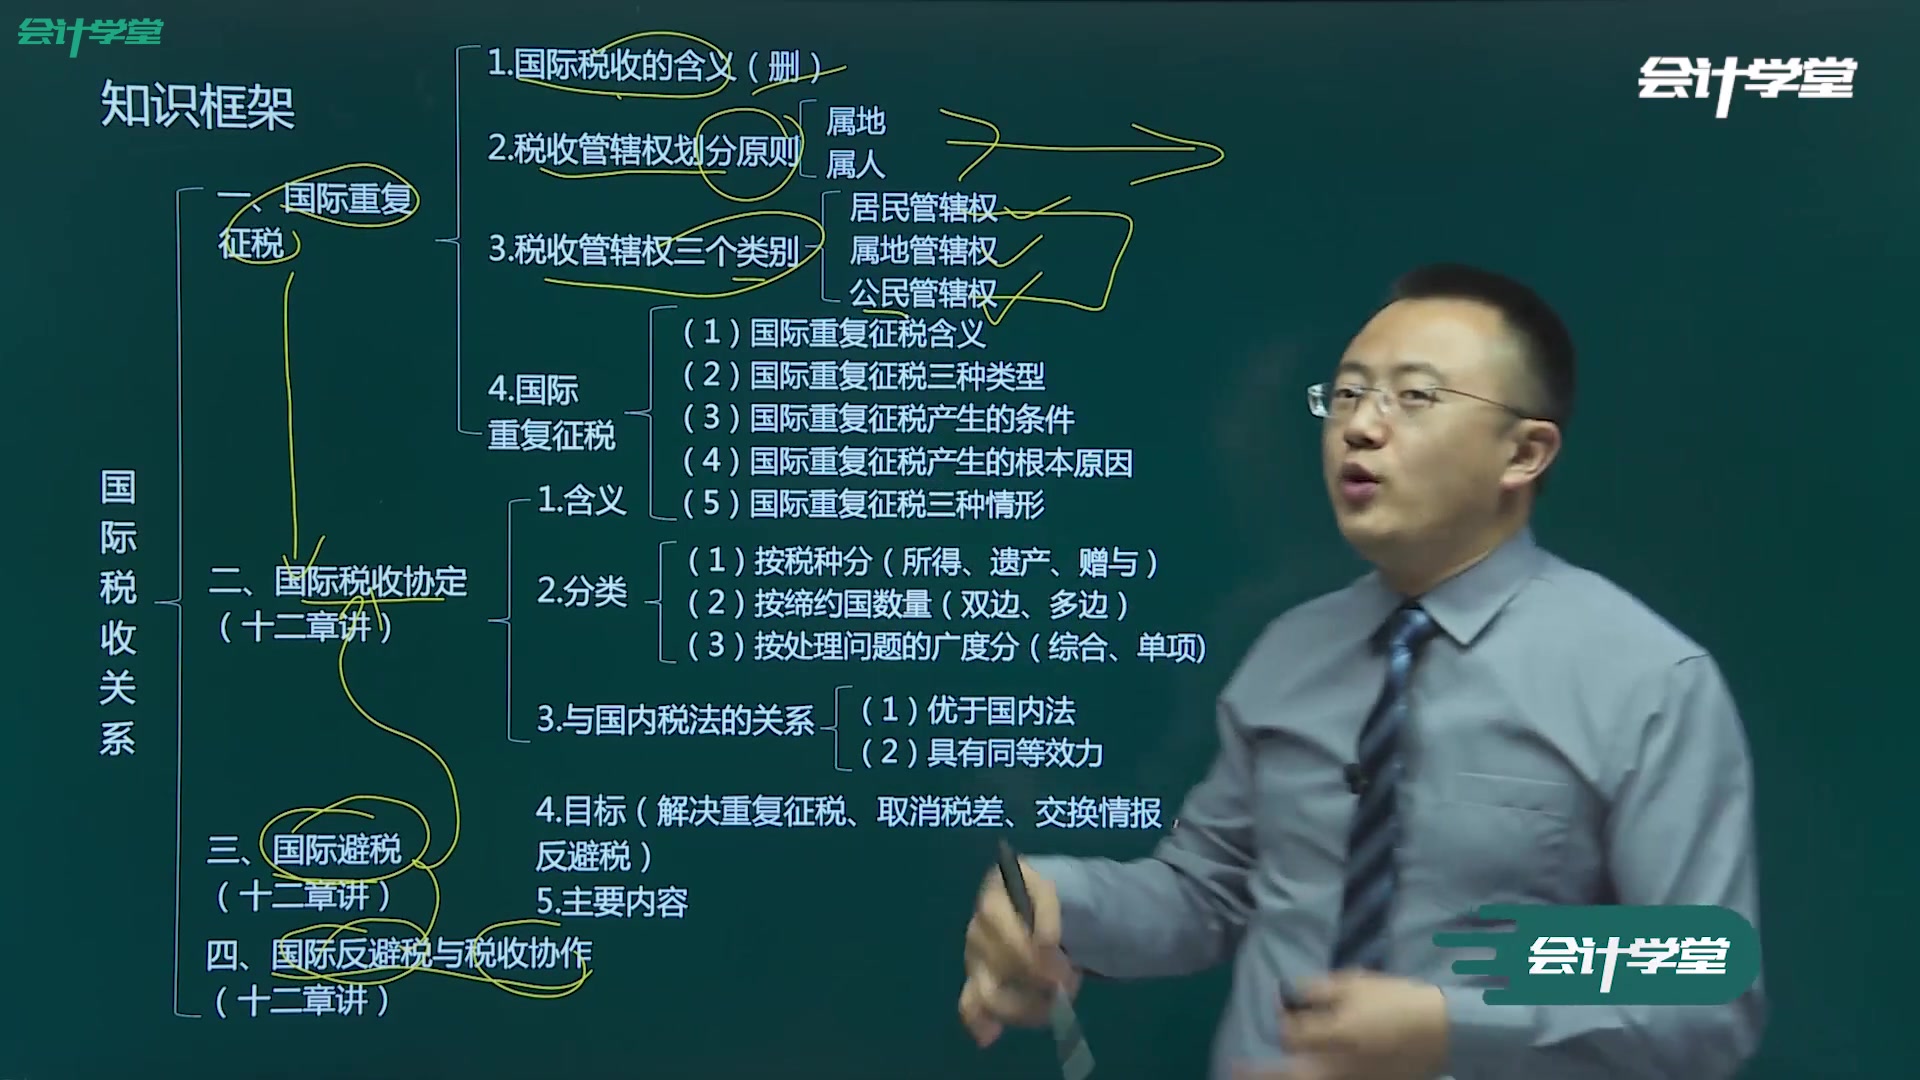 会计学堂
会计学堂
知识框架
国际税收关系
一、国际重复
征税
1.国际税收的含义（删）
2.税收管辖权划分原则
属地
属人
3.税收管辖权三个类别
居民管辖权
属地管辖权
公民管辖权
4.国际
重复征税
（1）国际重复征税含义
（2）国际重复征税三种类型
（3）国际重复征税产生的条件
（4）国际重复征税产生的根本原因
（5）国际重复征税三种情形
二、国际税收协定
（十二章讲）
1.含义
2.分类
（1）按税种分（所得、遗产、赠与）
（2）按缔约国数量（双边、多边）
（3）按处理问题的广度分（综合、单项)
3.与国内税法的关系
（1）优于国内法
（2）具有同等效力
4.目标（解决重复征税、取消税差、交换情报、
反避税）
5.主要内容
三、国际避税
（十二章讲）
四、国际反避税与税收协作
（十二章讲）
会计学堂